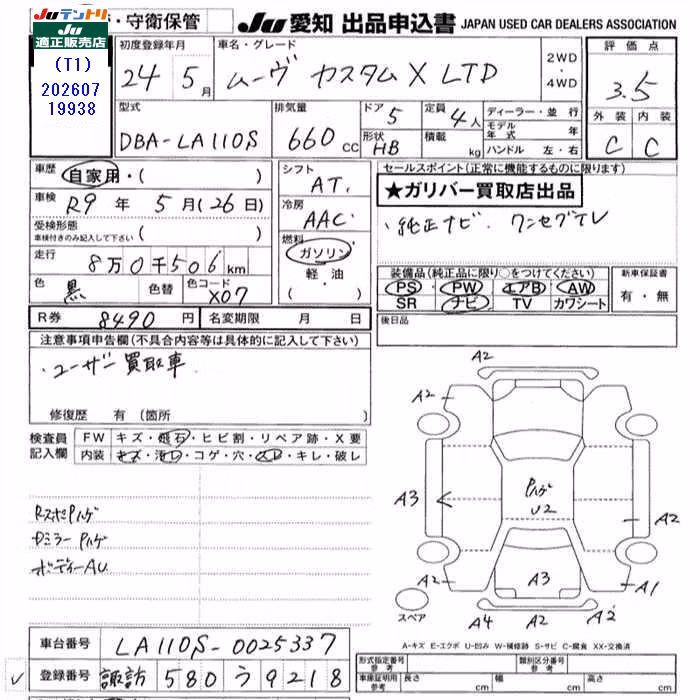 Juテントリ
適正販売店
(T1)
202607
19938
・守衛保管
Ju 愛知 出品申込書 JAPAN USED CAR DEALERS ASSOCIATION
初度登録年月
24 5月
車名・グレード
ムーヴ カスタムX LTD
2WD
・
4WD
評価点
3.5
型式
DBA-LA110S
排気量
660cc
ドア 5
形状 HB
定員 4人
積載 kg
ディーラー・並行
モデル年式 年
ハンドル 左・右
外装 内装
C C
車歴 自家用・( )
車検 R9年 5月(26日)
受検形態
車検付きのみ記入して下さい ( )
走行 8万0千506km
色 黒 色替 色コード X07
シフト
AT
冷房
AAC
燃料
ガソリン
軽・油
・( )
セールスポイント(正常に機能するものに限ります)
★ガリバー買取店出品
・純正ナビ. ワンセグTV
装備品(純正品に限り○をつけてください)
PS PW エアB AW
SR ナビ TV カワシート
新車保証書
有・無
R券 8490円 名変期限 月 日
後日品
注意事項申告欄(不具合内容等は具体的に記入して下さい)
・ユーザー買取車
修復歴 有(箇所 )
検査員
記入欄
FW キズ・飛石・ヒビ割・リペア跡・X要
内装 キズ・汚レ・コゲ・穴・スレ・キレ・破レ
RスポPハゲ
ドミラーPハゲ
ボディーAU
A2
A2
A2
A3
Pハゲ
U2
A2
A2
A3
A1
スペア
A4 A2 A2
A-キズ E-エクボ U-凹み W-補修跡 S-サビ C-腐食 XX-交換済
車台番号 LA110S-0025337
登録番号 諏訪 580 う 9218
形式指定番号
参考
類別区分番号
参考
車庫証明用
参考
長さ cm
幅 cm
高さ cm